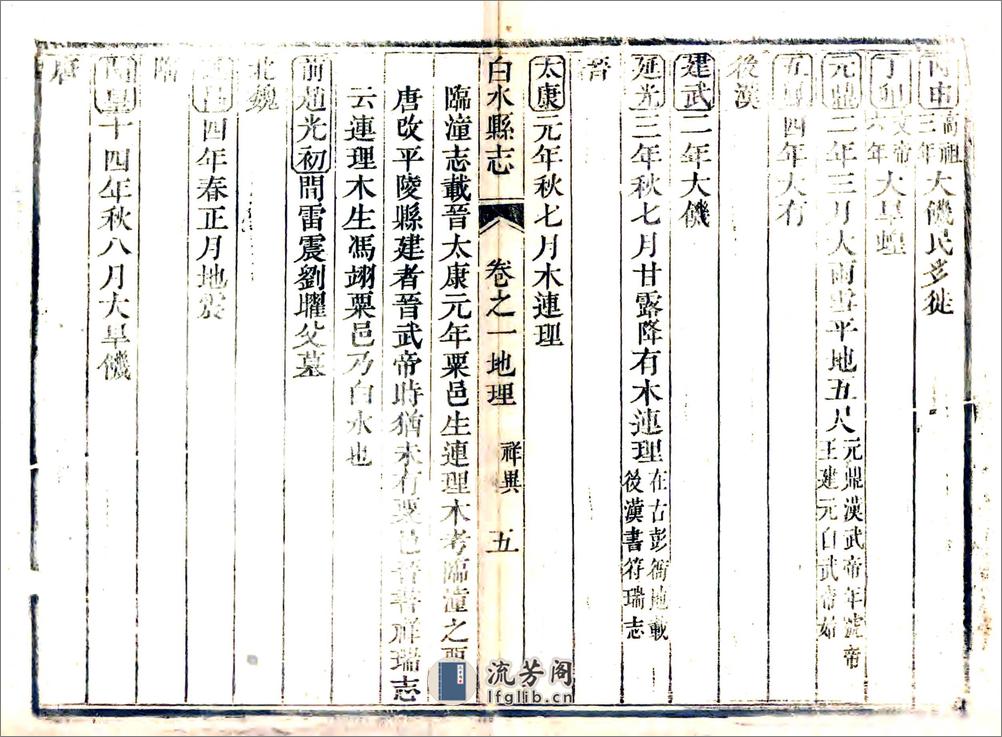 丙申高祖三年大饑民多徙
丁卯文帝六年大旱蝗
元鼎二年三月大雨雪平地五尺元鼎漢武帝年號帝王建元自武帝始
五鳳四年大有
後漢
建武二年大饑
延光三年秋七月甘露降有木連理在古彭衙地載後漢書符瑞志
晉
太康元年秋七月木連理
白水縣志 卷之一地理 祥異 五
臨潼志載晉太康元年粟邑生連理木考臨潼之粟
唐改平陵縣建者晉武帝時猶未有粟邑晉書祥瑞志
云連理木生馮翊粟邑乃白水也
前趙光初間雷震劉曜父墓
北魏
四年春正月地震
隋
開皇十四年秋八月大旱饑
唐
流芳阁
lfglib.cn